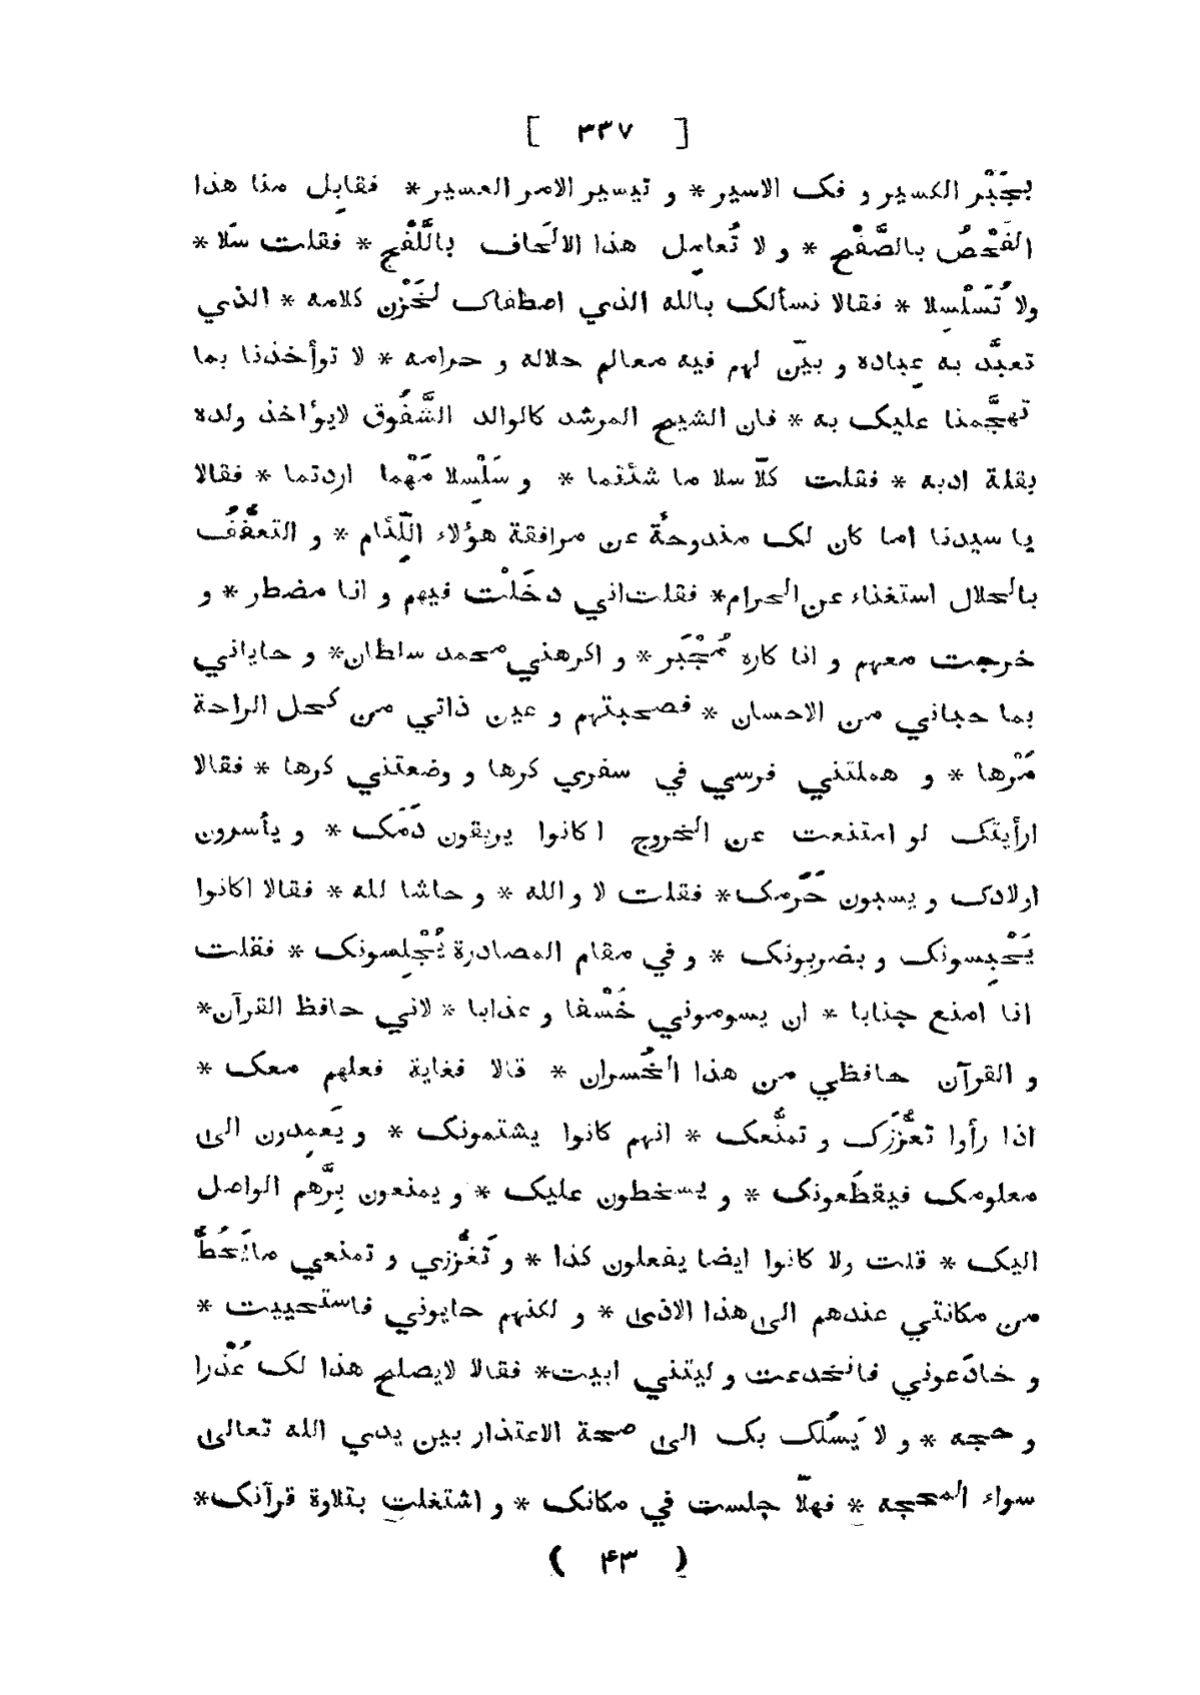 [ ٣٣٧ ]
بجَبْر الكسير و فك الاسير * و تيسير الامر العسير * فقابِل منا هذا
الفَحْصُ بالصَّفْح * و لا تُعامِل هذا الالحاف باللَّفْح * فقلت سَلا *
ولا تُسَلْسِلا * فقالا نسألك بالله الذي اصطفاك لخَزْن كلامه * الذي
تعبَّد به عِباده و بيّن لهم فيه معالم حلاله و حرامه * لا توأخذنا بما
تهجَّمنا عليك به * فان الشيخ المرشد كالوالد الشَّفُوق لايؤاخذ ولده
بقلة ادبه * فقلت كلّا سلا ما شئتما * و سَلْسِلا مَهْما اردتما * فقالا
يا سيدنا اما كان لك مندوحةٌ عن مرافقة هؤلاء اللِّئام * و التعفُّفُ
بالحلال استغناء عن الحرام * فقلت اني دخَلْت فيهم و انا مضطر * و
خرجت معهم و انا كاره مُجْبَر * و اكرهني محمد سلطان * و حاياني
بما حباني من الاحسان * فصحبتهم و عين ذاتي من كحل الراحة
مَرْها * و حملتني فرسي في سفري كرها و وضعتني كرها * فقالا
ارأيتك لو امتنعت عن الخروج اكانوا يريقون دَمَك * و يأسرون
اولادك و يسبون حَرَمك * فقلت لا و الله * و حاشا لله * فقالا اكانوا
يَحْبِسونك و يضربونك * و في مقام المصادرة يُجْلِسونك * فقلت
انا امنع جنابا * ان يسوموني خَسْفا و عذابا * لاني حافظ القرآن *
و القرآن حافظي من هذا الخُسران * قالا فغاية فعلهم معك *
اذا رأوا تعزُّزَك و تمنُّعك * انهم كانوا يشتمونك * و يَعمِدون الى
معلومك فيقطَعونك * و يسخطون عليك * و يمنعون بِرَّهم الواصل
اليك * قلت ولا كانوا ايضا يفعلون كذا * و تَعَزُّزي و تمنعي مايَحُطُّ
من مكانتي عندهم الى هذا الاذى * و لكنهم حايوني فاستحييت *
و خادَعوني فانخدعت و ليتني ابيت * فقالا لايصلح هذا لك عُذْرا
و حجه * و لا يَسْلك بك الى صحة الاعتذار بين يدي الله تعالى
سواء المحجه * فهلّا جلست في مكانك * و اشتغلت بتلاوة قرآنك *
( ۴٣ )